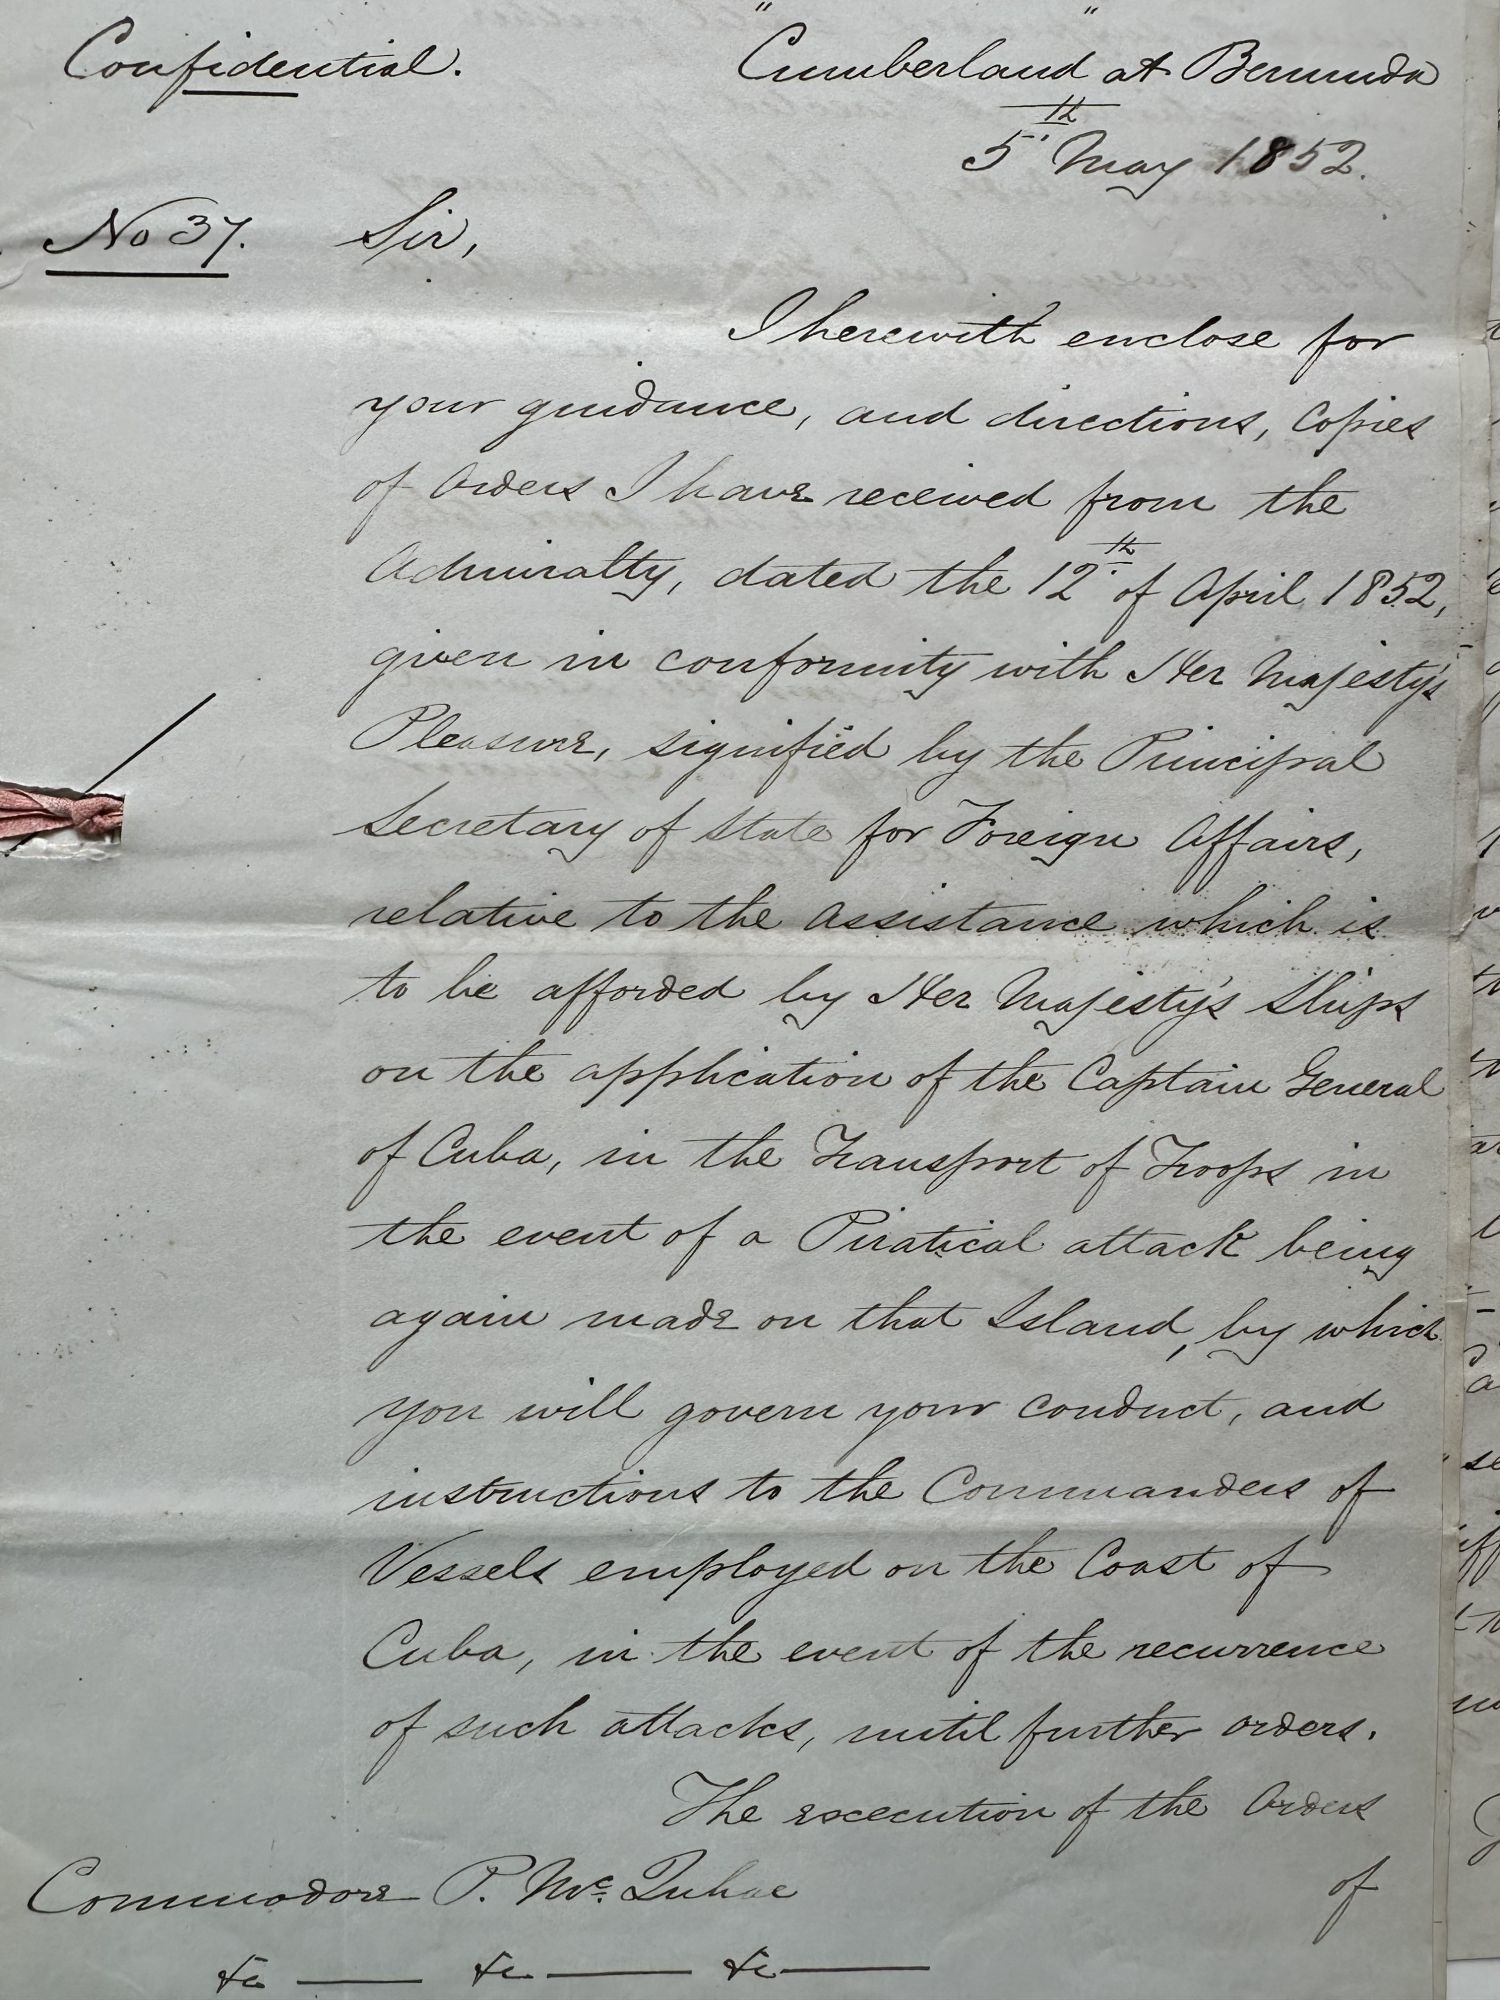 Confidential.
"Cumberland" at Bermuda
5th May 1852.
No 37.
Sir,
I herewith enclose for
your guidance, and directions, Copies
of Orders I have received from the
Admiralty, dated the 12th of April 1852,
given in conformity with Her Majesty's
Pleasure, signified by the Principal
Secretary of State for Foreign Affairs,
relative to the Assistance which is
to be afforded by Her Majesty's Ships
on the application of the Captain General
of Cuba, in the Transport of Troops in
the event of a Piratical attack being
again made on that Island, by which
you will govern your conduct, and
instructions to the Commanders of
Vessels employed on the Coast of
Cuba, in the event of the recurrence
of such attacks, until further orders.
The execution of the Orders
of
Commodore P. McQuhae
&c —— &c —— &c ——